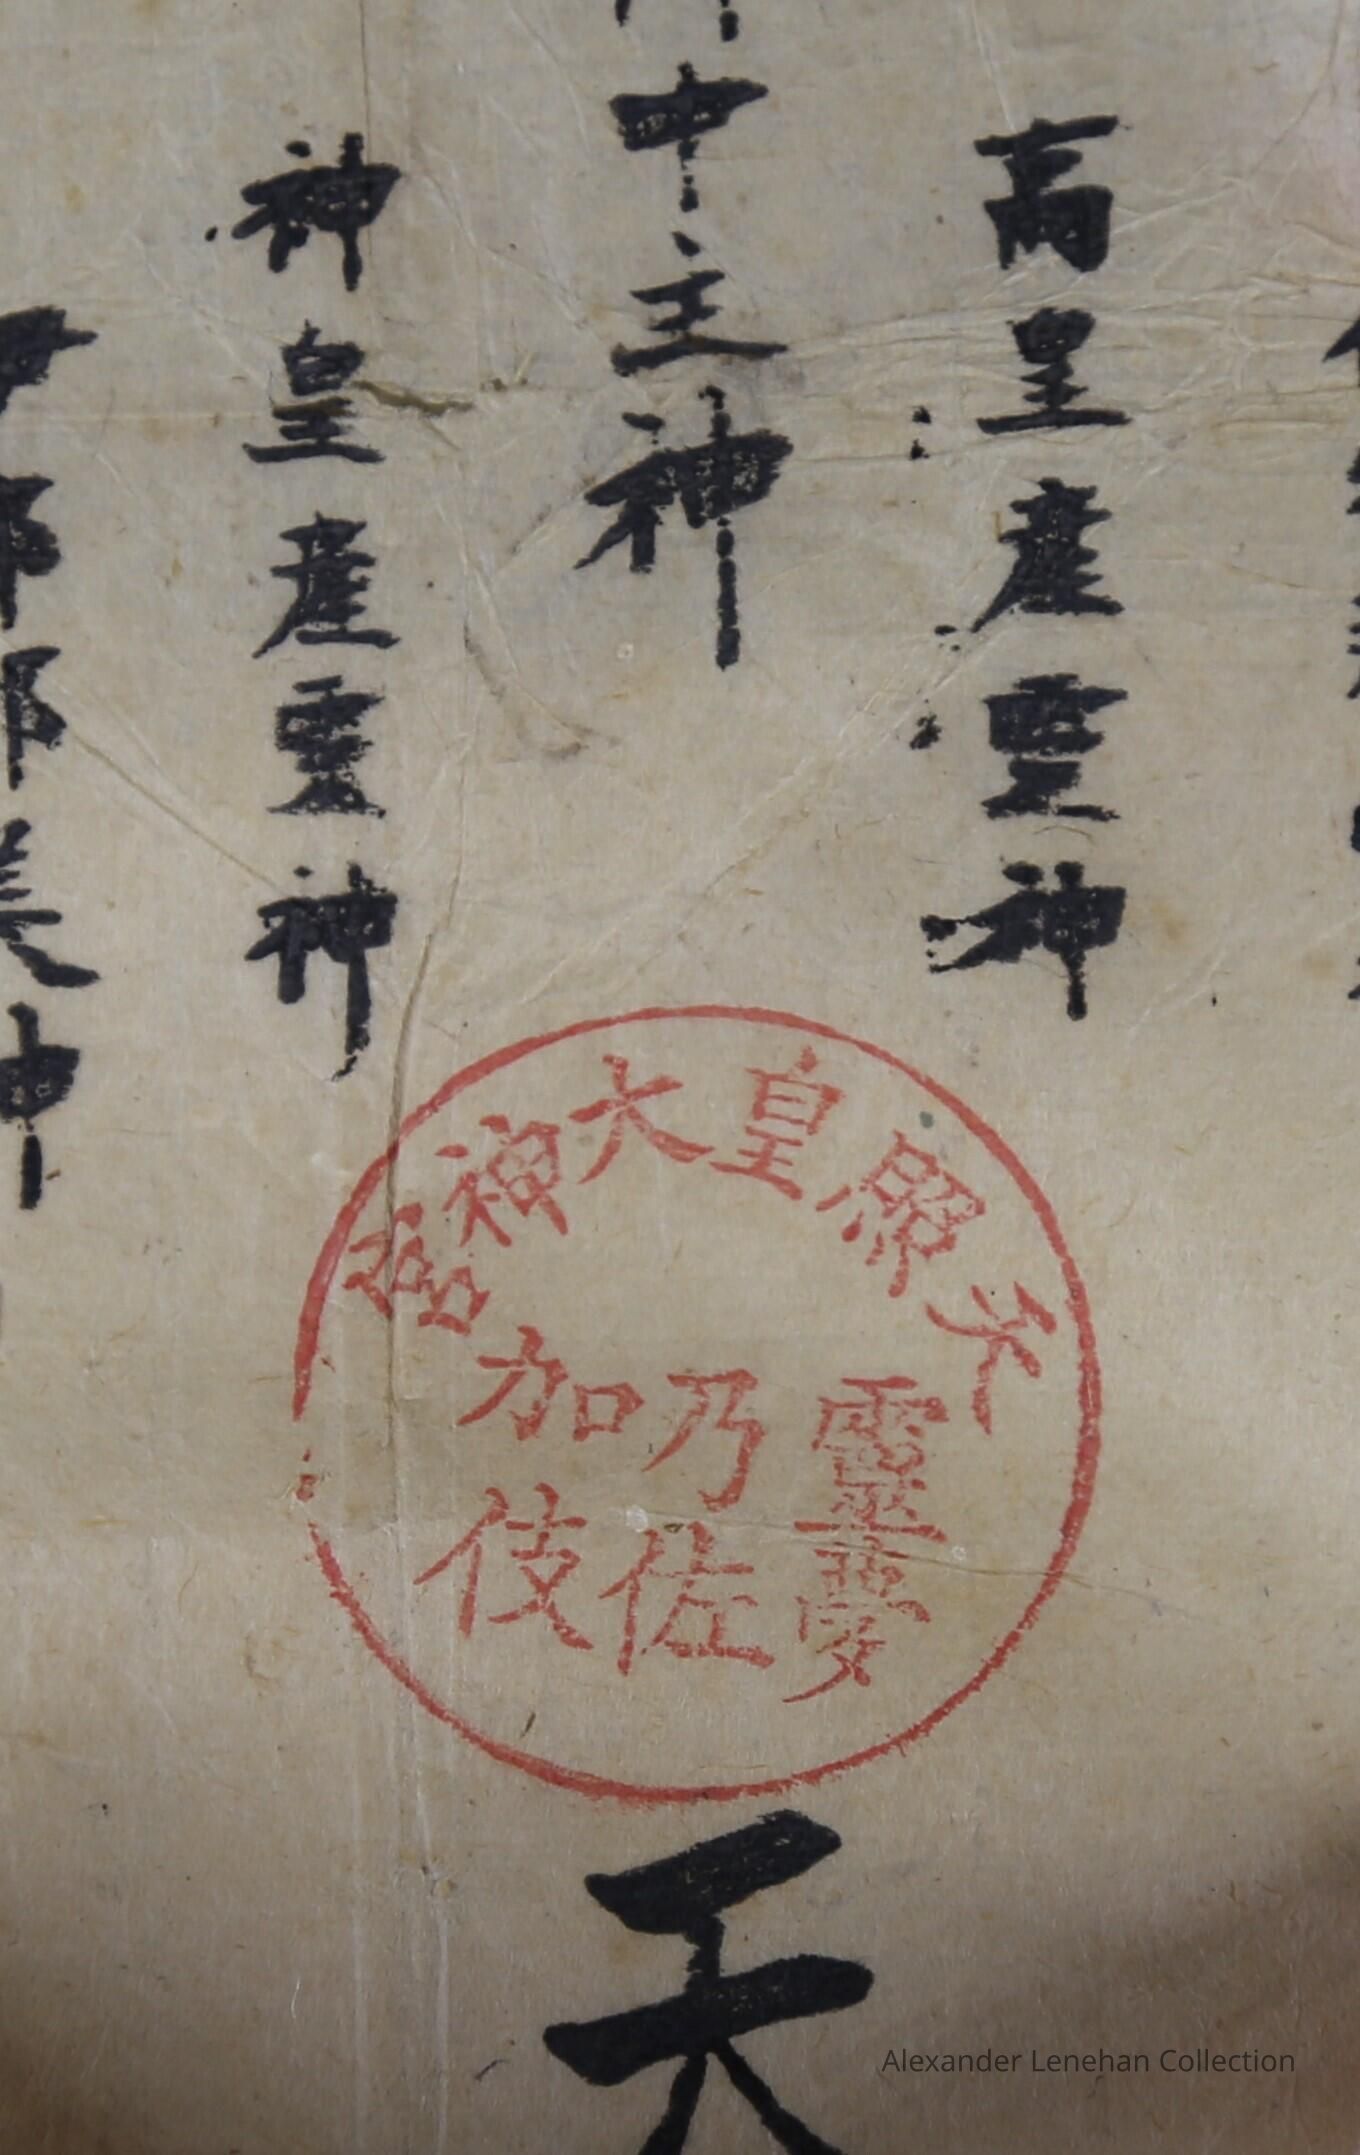 高皇產靈神
中主神
神皇產靈神
那美神
天照皇大神宮
靈夢
乃佐
加伎
天
Alexander Lenehan Collection